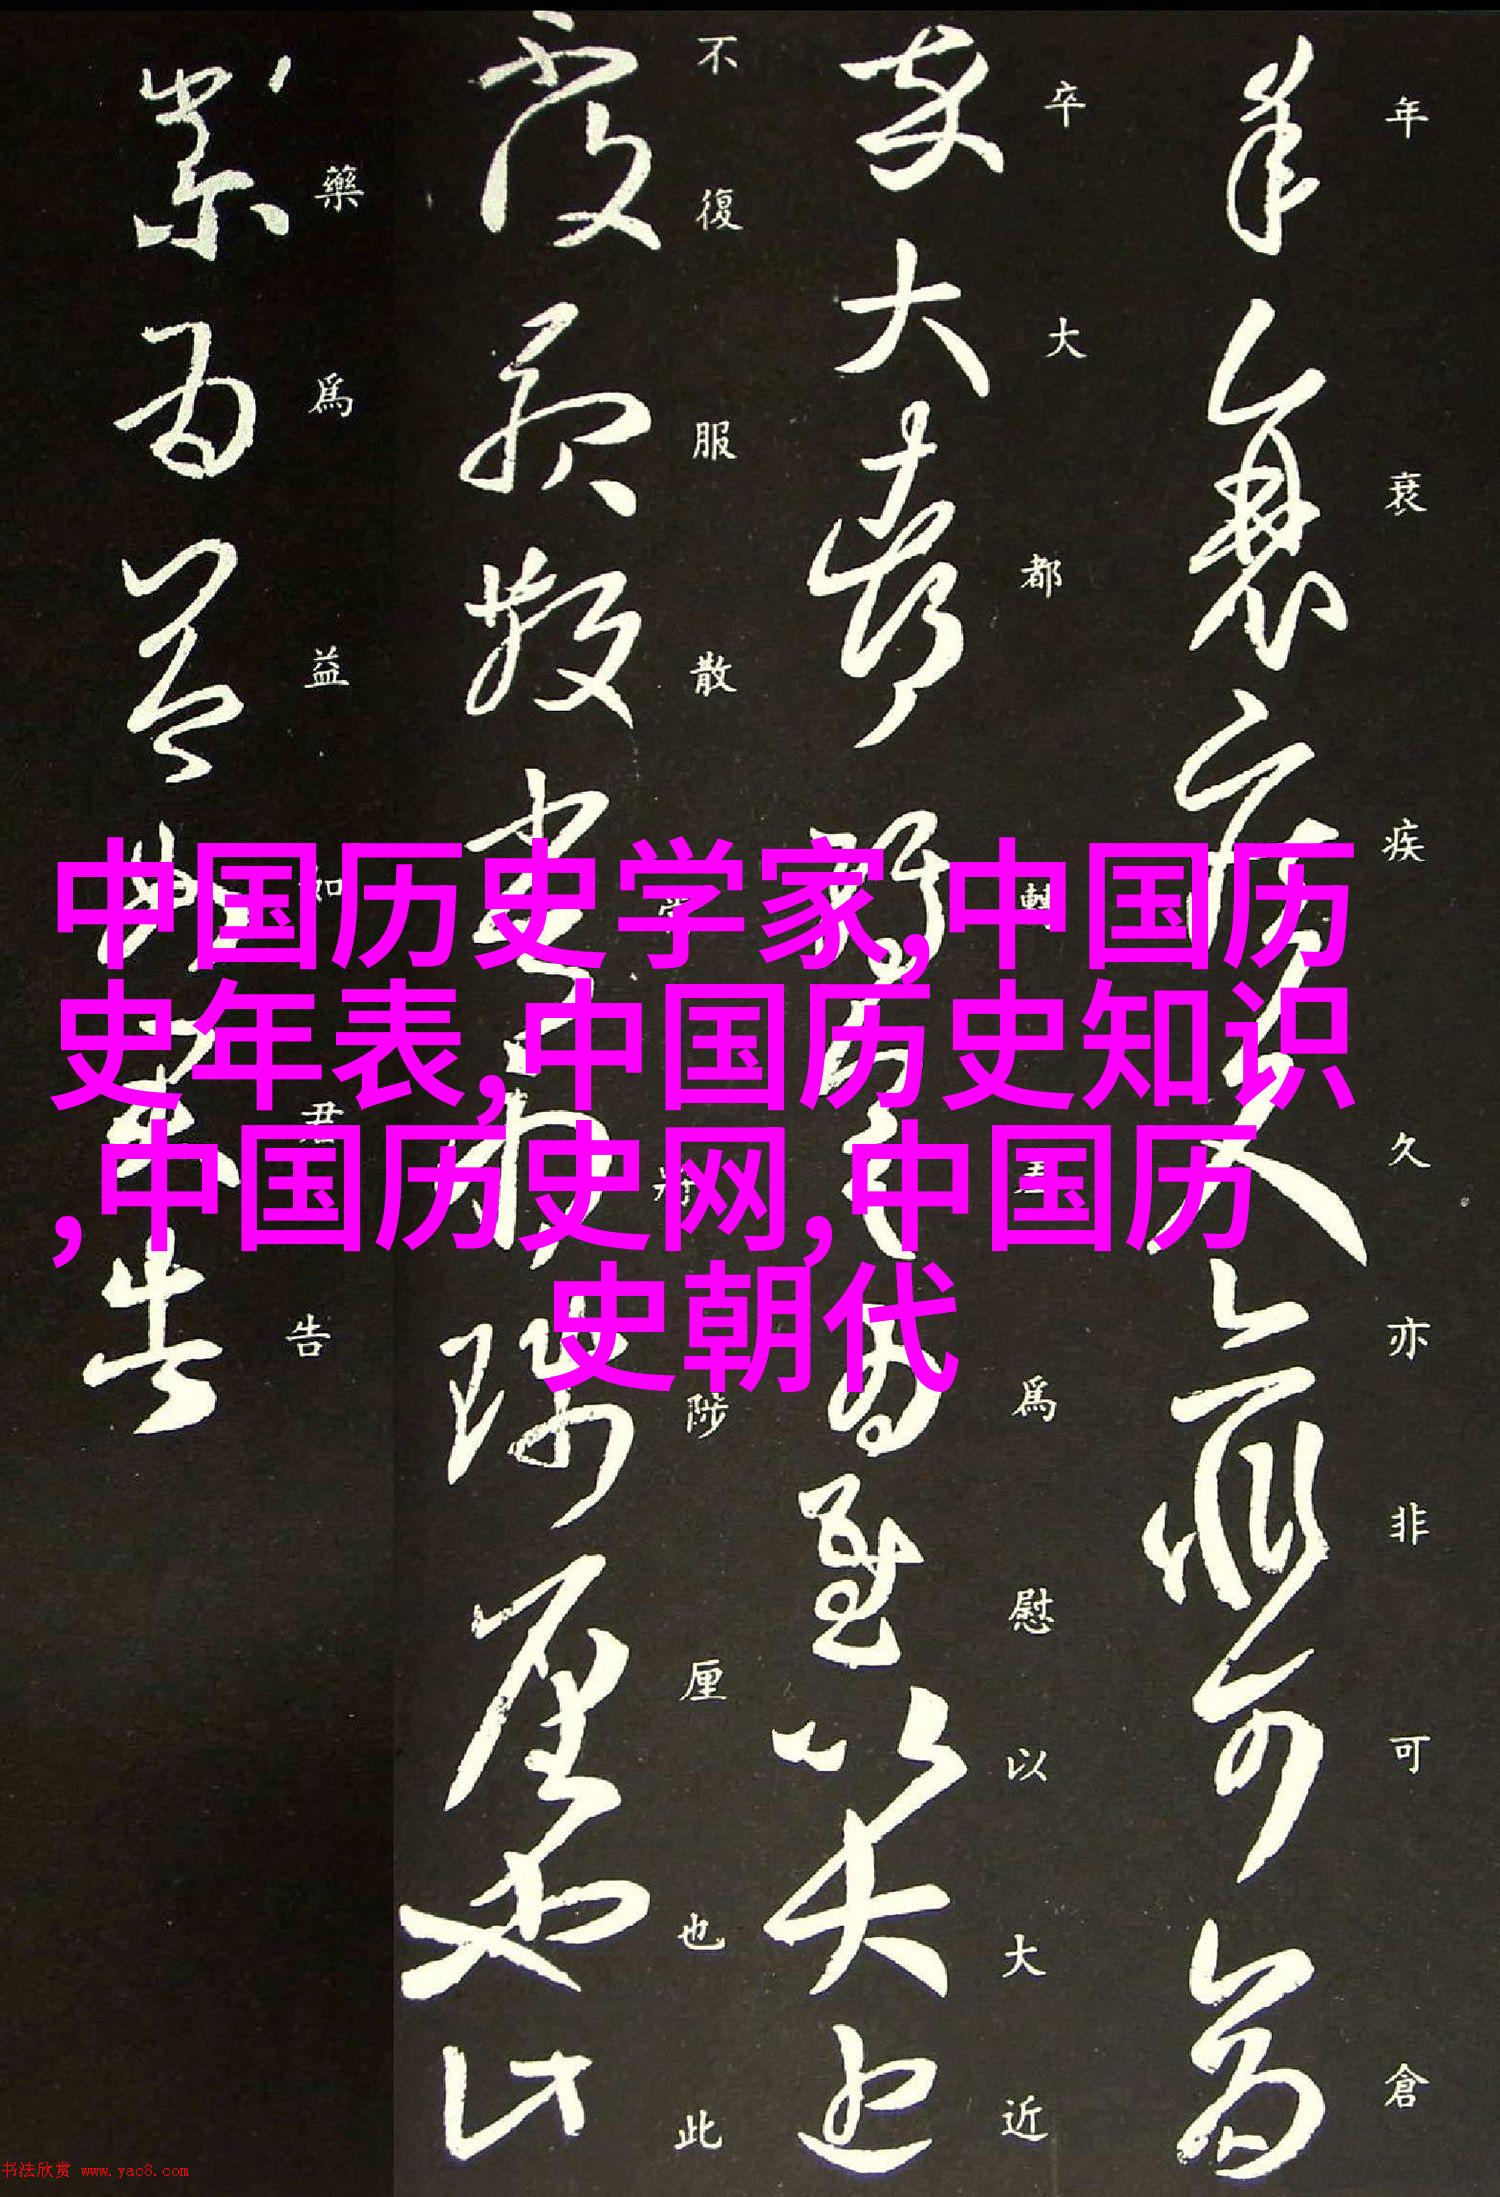 年衰疾久亦非可倉
卒大都轉差為慰以大近
不復服散常將陟厘也此
藥為益如君告
中国历史学家,中国历
史年表,中国历史知识
,中国历史网,中国历
史朝代
书法欣赏 www.yac8.com